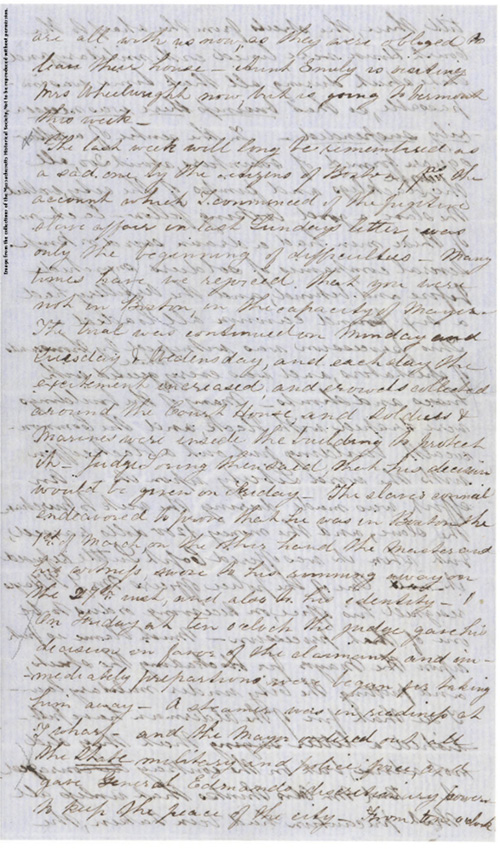 are all with us now, as they were obliged to
leave their house – Aunt Emily is visiting
Mrs Wheelwright now, but is going to Vermont
this week –
The last week will long be remembered as
a sad one by the citizens of Boston, for the
account which I commenced of the fugitive
slave affair in last Sunday's letter, was
only the beginning of difficulties – Many
times have we rejoiced that you were
not in Boston, in the capacity of Mayor –
The trial was continued on Monday and
Tuesday & Wednesday, and each day the
excitement increased, and crowds collected
around the Court House, and soldiers &
Marines were inside the building to protect
it – Judge Loring then said that his decision
would be given on Friday – The slaves counsel
endeavored to prove that he was in Boston the
1st of March, on the other hand the master and
his witness swore to his running away on
the 24th inst, and also to his identity – !
On Friday at ten oclock the judge gave his
decision in favor of the claimants and im-
-mediately preparations were began for taking
him away – A steamer was in readiness at
wharf – and the Mayor ordered out all
the State military and police force, and
gave General Edmands discretionary power
to keep the peace of the city – From ten oclock
Image from the collections of the Massachusetts Historical Society. Not to be reproduced without permission.